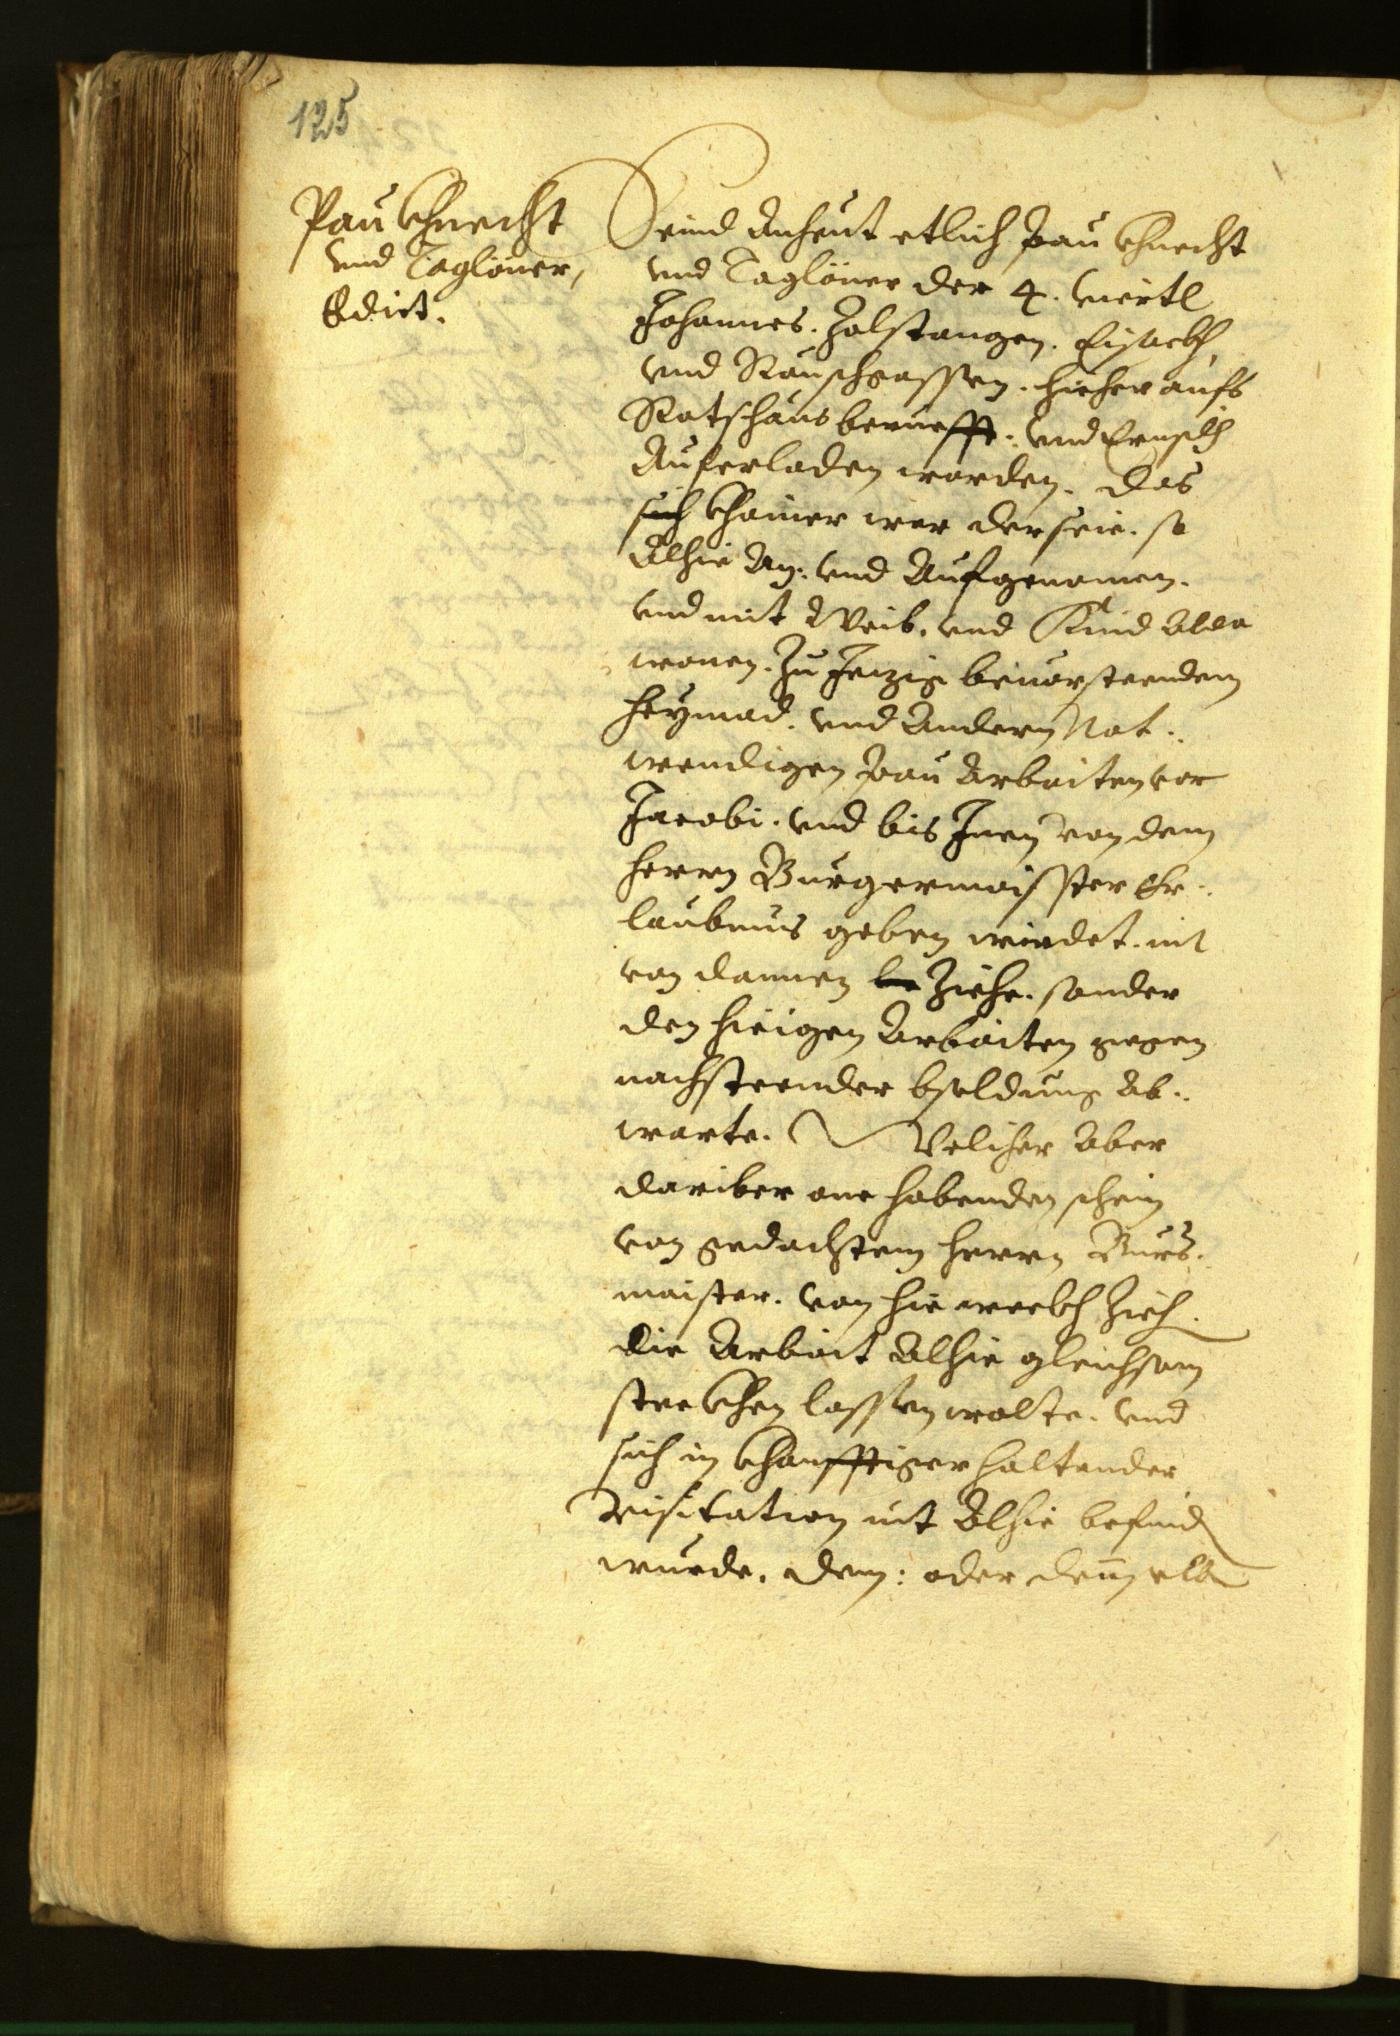 125
Pau Khnecht
vnd Taglöner,
Edict.
Seind Anheut etlich Pau Khnecht
vnd Taglöner der 4. viertl
Johannes. Zolstangen. Eysackh
vnd Rauschgassen. hieher aufs
Ratschaus beruefft. vnd Ernstl
Auferladen worden. Das
sich Khainer wer der seie. so
Alhie An: vnd Aufgenomen.
vnd mit Weib. vnd Kind alda
wonen. Zu Jeczig beuorsteendem
heymad. vnd Andern Not:
wendigen Pau Arbaiten vor
Jacobi. vnd bis Inen von dem
herrn Burgermaister Er:
laubnus geben wirdet. nit
von dannen Ziehe. sonder
den hieigen Arbaiten gegen
nachsteender bsoldung Ab:
warte. Welicher Aber
dariber one habenden schein
von gedachtem herrn Burg:
maister. von hie weckh Zieh.
die Arbait Alhie gleichsam
steckhen lassen wolte. vnd
sich in Khonfftiger haltender
visitation nit Alhie befind
wurde. dem: oder denselb